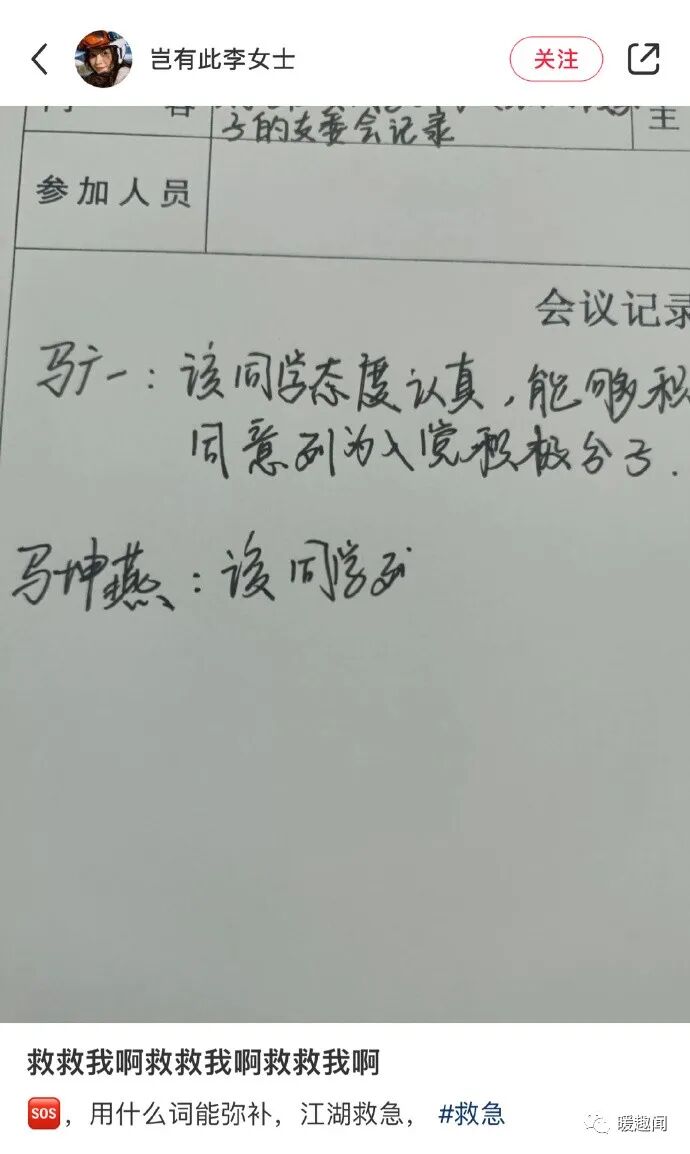 岂有此李女士
关注
子的支委会记录
参加人员
会议记录
马广一：该同学态度认真，能够积
同意列为入党积极分子.
马坤燕：该同学列
救救我啊救救我啊救救我啊
SOS，用什么词能弥补，江湖救急，#救急
暖趣闻